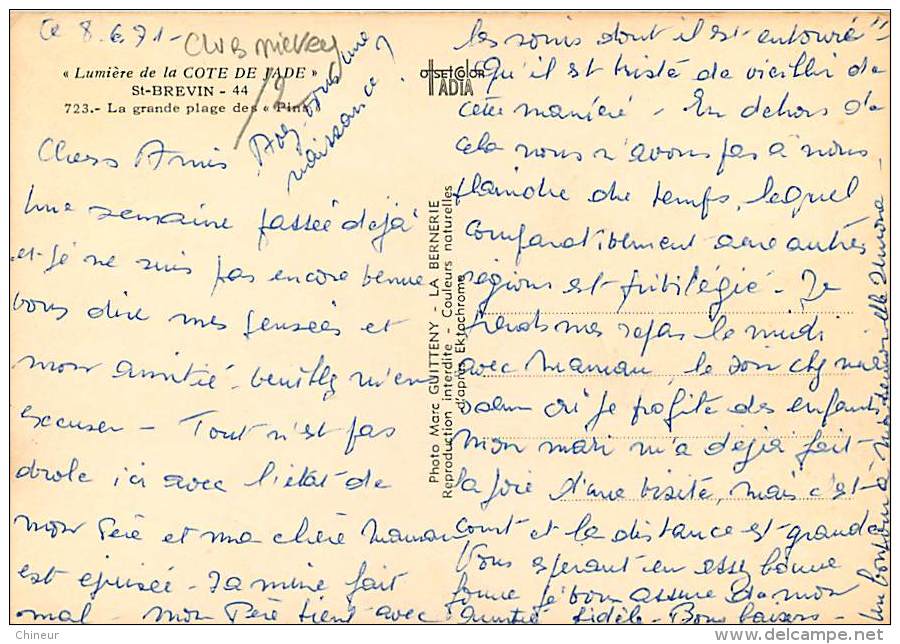 Ce 8.6.71-
CLUB MICKEY
« Lumière de la COTE DE JADE »
St-BREVIN - 44
723.- La grande plage des « Pins »
OFFSETCOLOR
IADIA
Avez-vous une
naissance ?
Chers Amis
Une semaine passée déjà
et je ne suis pas encore venue
vous dire mes pensées et
mon amitié. Veuillez m'en
excuser - Tout n'est pas
drole ici avec l'état de
mon Père et ma chère Maman
est épuisée - Sa mine fait
mal - mon Père tient avec
les soins dont il est entouré
Qu'il est triste de vieillir de
cette manière - En dehors de
cela nous n'avons pas à nous
plaindre du temps, lequel
comparativement avec autres
régions est privilégié. Je
prends mes repas le midi
avec Maman, le soir chez ma
soeur où je profite des enfants
Mon mari m'a déjà fait
la joie d'une visite, mais c'est
court et la distance est grande
Vous espérant en assez bonne
forme je vous assure de mon
Amitié fidèle - Bons baisers -
Un bonjour à Mademoiselle
Photo Marc GUITTENY - LA BERNERIE
Reproduction interdite - Couleurs naturelles
d'après Ektachrome
Chineur
www.delcampe.net